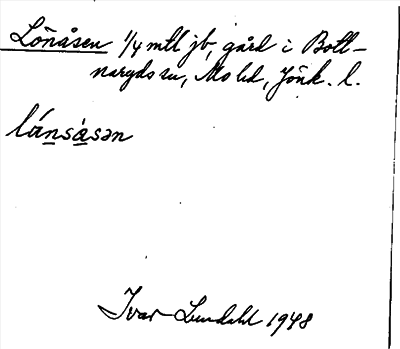 Lönåsen 1/4 mtl jb, gård i Bott-
naryds sn, Mo hd, Jönk. l.
lánsàsən
Ivar Lundahl 1948